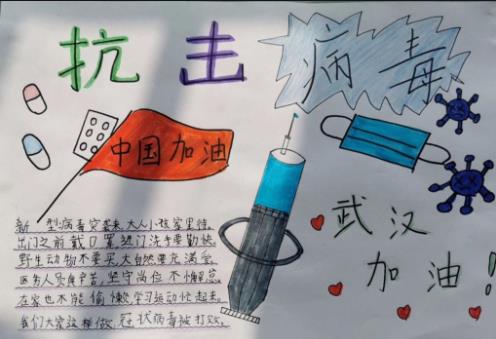 抗击病毒
中国加油
武汉
加油!
新型病毒突袭来,大人小孩家里待。
出门之前戴口罩,进门洗手要勤快。
野生动物不要买,大自然要充满爱。
医务人员真辛苦,坚守岗位不懈怠。
在家也不能偷懒,学习运动忙起来。
我们大家这样做,冠状病毒被打败。